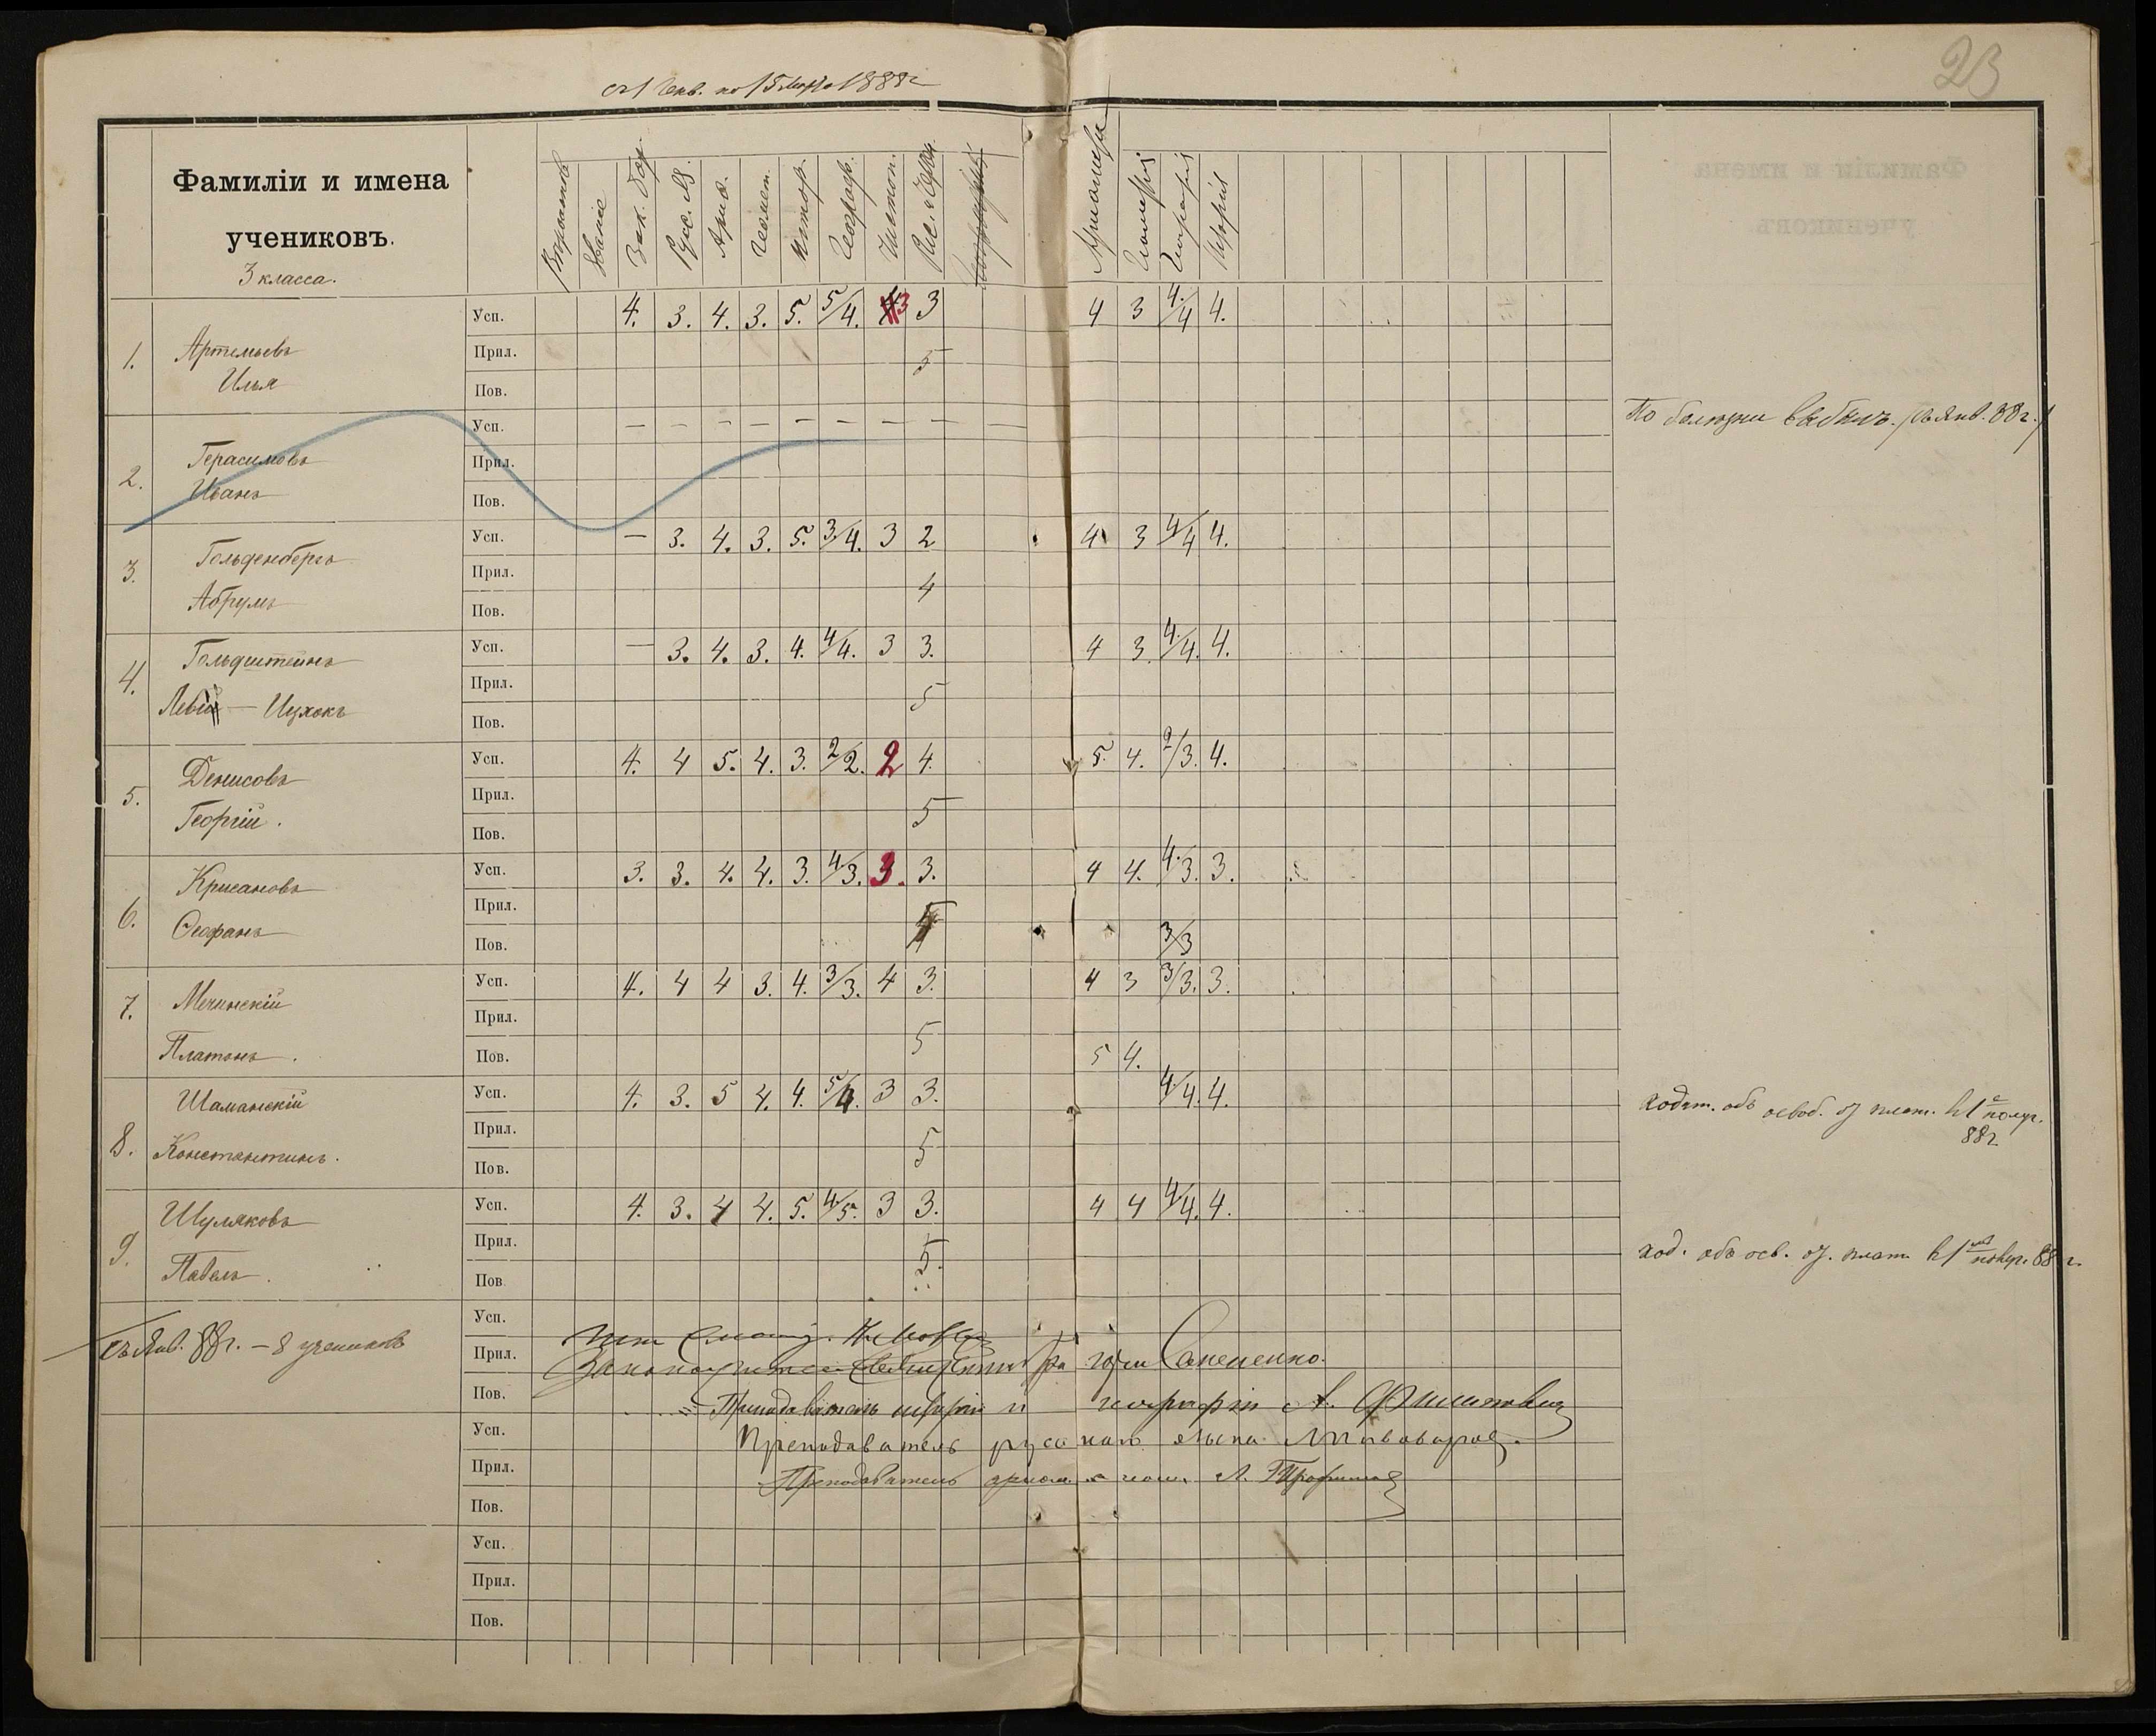 съ 1 Янв. по 15 Марта 1888 г
23
Фамиліи и имена
учениковъ.
3 класса.
Зак. Бож.
Русс. яз.
Ариѳ.
Геомет.
Истор.
Географ.
Чистоп.
Рис. и Черч.
Ариѳмет.
Геометрія
Географія
Исторія
1. Артемьевъ
Илья
Усп. 4. 3. 4. 3. 5. 5/4. 3 3 4 3 4/4 4.
Прил. 5
Пов.
2. Герасимовъ
Иванъ
Усп. — — — — — — — — —
По болезни выбылъ. /съ Янв. 88 г./
Прил.
Пов.
3. Гольденбергъ
Абрумъ
Усп. — 3. 4. 3. 5. 3/4. 3 2 4 3 4/4 4.
Прил. 4
Пов.
4. Гольдштейнъ
Леви — Ицхокъ
Усп. — 3. 4. 3. 4. 4/4. 3 3. 4 3. 4/4. 4.
Прил. 5
Пов.
5. Денисовъ
Георгій.
Усп. 4. 4 5. 4. 3. 2/2. 2 4. 5. 4. 2/3. 4.
Прил. 5
Пов.
6. Крисановъ
Ѳеофанъ
Усп. 3. 3. 4. 4. 3. 4/3. 3. 3. 4 4. 4/3. 3.
Прил.
Пов. 3/3
7. Мечинскій
Платонъ.
Усп. 4. 4 4 3. 4. 3/3. 4 3. 4 3 3/3. 3.
Прил. 5
Пов. 5 4.
8. Шаманскій
Константинъ.
Усп. 4. 3. 5 4. 4. 5/4. 3 3. 4/4. 4.
ходат. объ освоб. от плат. въ 1 е полуг.
88 г.
Прил. 5
Пов.
9. Шуляковъ
Павелъ.
Усп. 4. 3. 4 4. 5. 4/5. 3 3. 4 4 4/4. 4.
Прил. 5.
ход. объ осв. от. плат. въ 1 полуг. 88 г.
Пов
съ Янв. 88 г. — 8 учениковъ
Усп.
Прил. Законоучитель Священникъ
Пов. Преподаватель исторіи и географіи А. Филиповичъ
Усп. Преподаватель русскаго языка Пивоваровъ.
Прил. Преподаватель ариѳм. и геом. А.
Пов.
Усп.
Прил.
Пов.